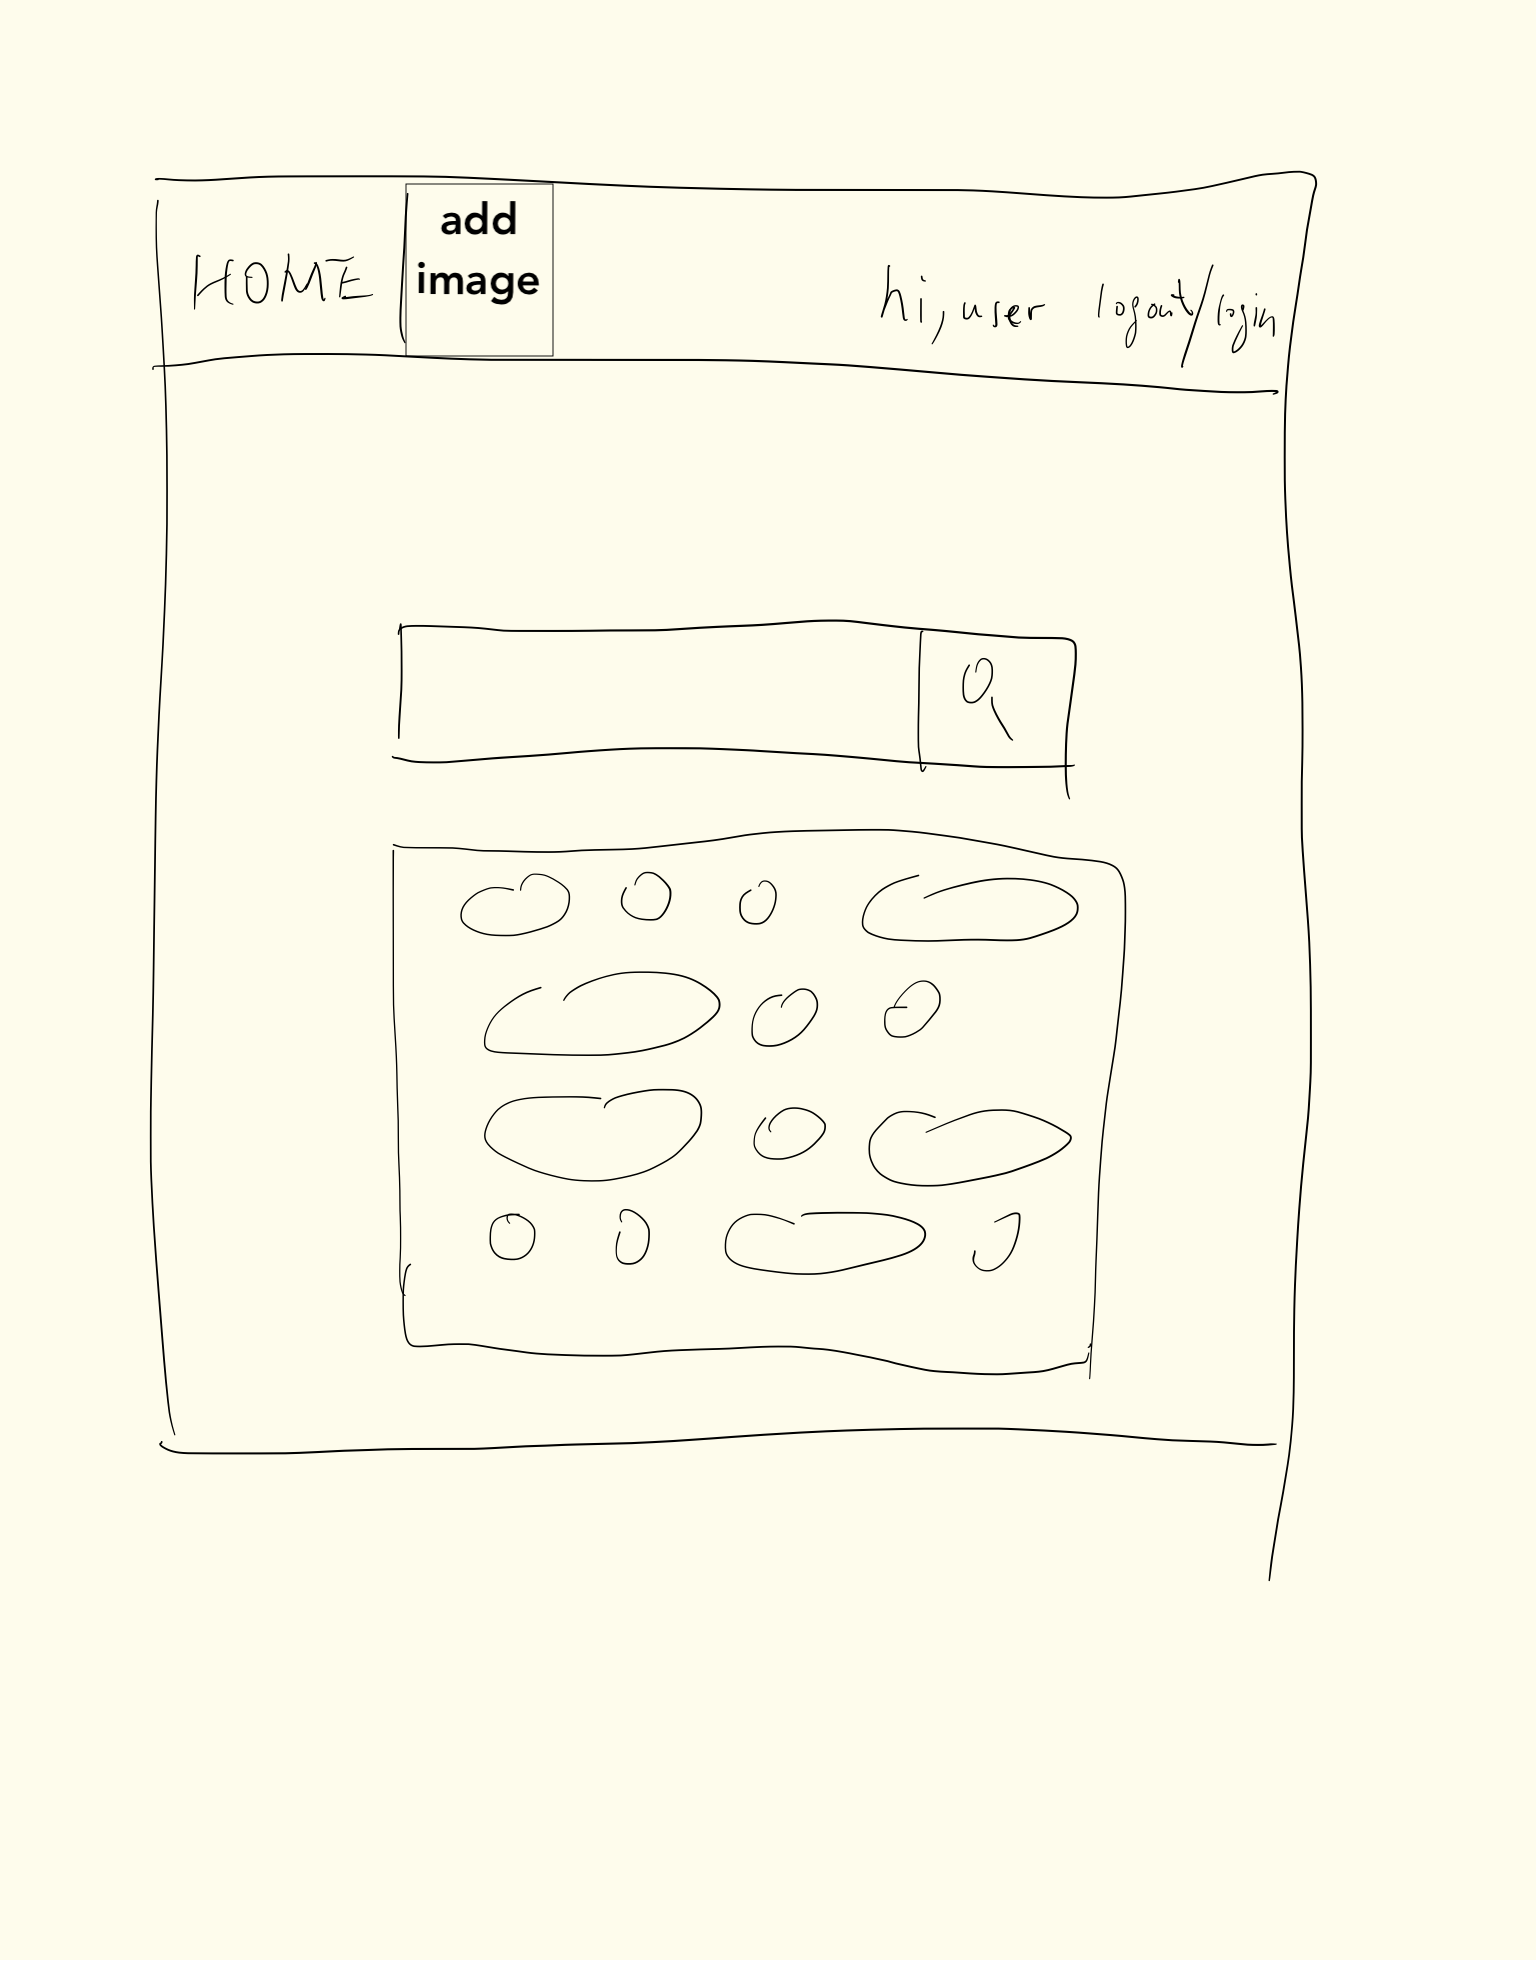 HOME
add
image
hi, user logout/login